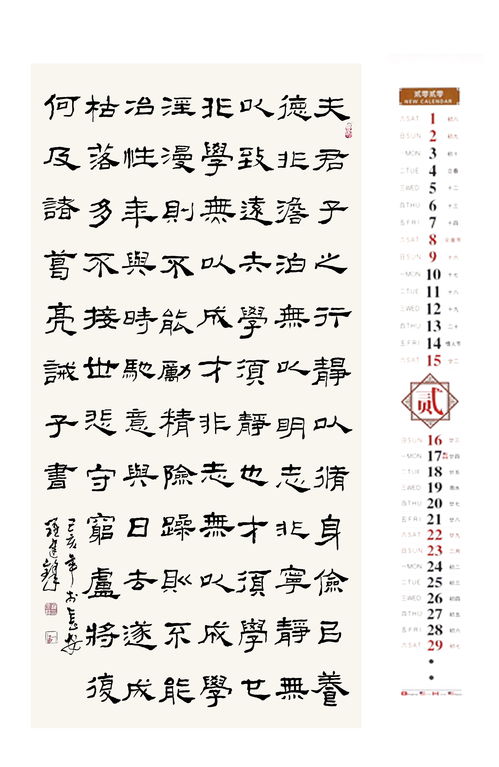 夫君子之行靜以脩身儉㠯養
德非澹泊無以明志非寧靜無
以致遠夫學須靜也才須學也
非學無以成才非志無以成學
淫漫則不能勵精險躁則不能
冶性年與時馳意與日去遂成
枯落多不接世悲守窮廬將復
何及諸葛亮誡子書
己亥年於長安
貳零貳零
NEW CALENDAR
六SAT 1 初八
日SUN 2 初九
一MON 3 初十
二TUE 4 立春
三WED 5 十二
四THU 6 十三
五FRI 7 十四
六SAT 8 元宵节
日SUN 9 十六
一MON 10 十七
二TUE 11 十八
三WED 12 十九
四THU 13 二十
五FRI 14 情人节
六SAT 15 廿二
贰
日SUN 16 廿三
一MON 17 廿四
二TUE 18 廿五
三WED 19 雨水
四THU 20 廿七
五FRI 21 廿八
六SAT 22 廿九
日SUN 23 二月
一MON 24 初二
二TUE 25 初三
三WED 26 初四
四THU 27 初五
五FRI 28 初六
六SAT 29 初七